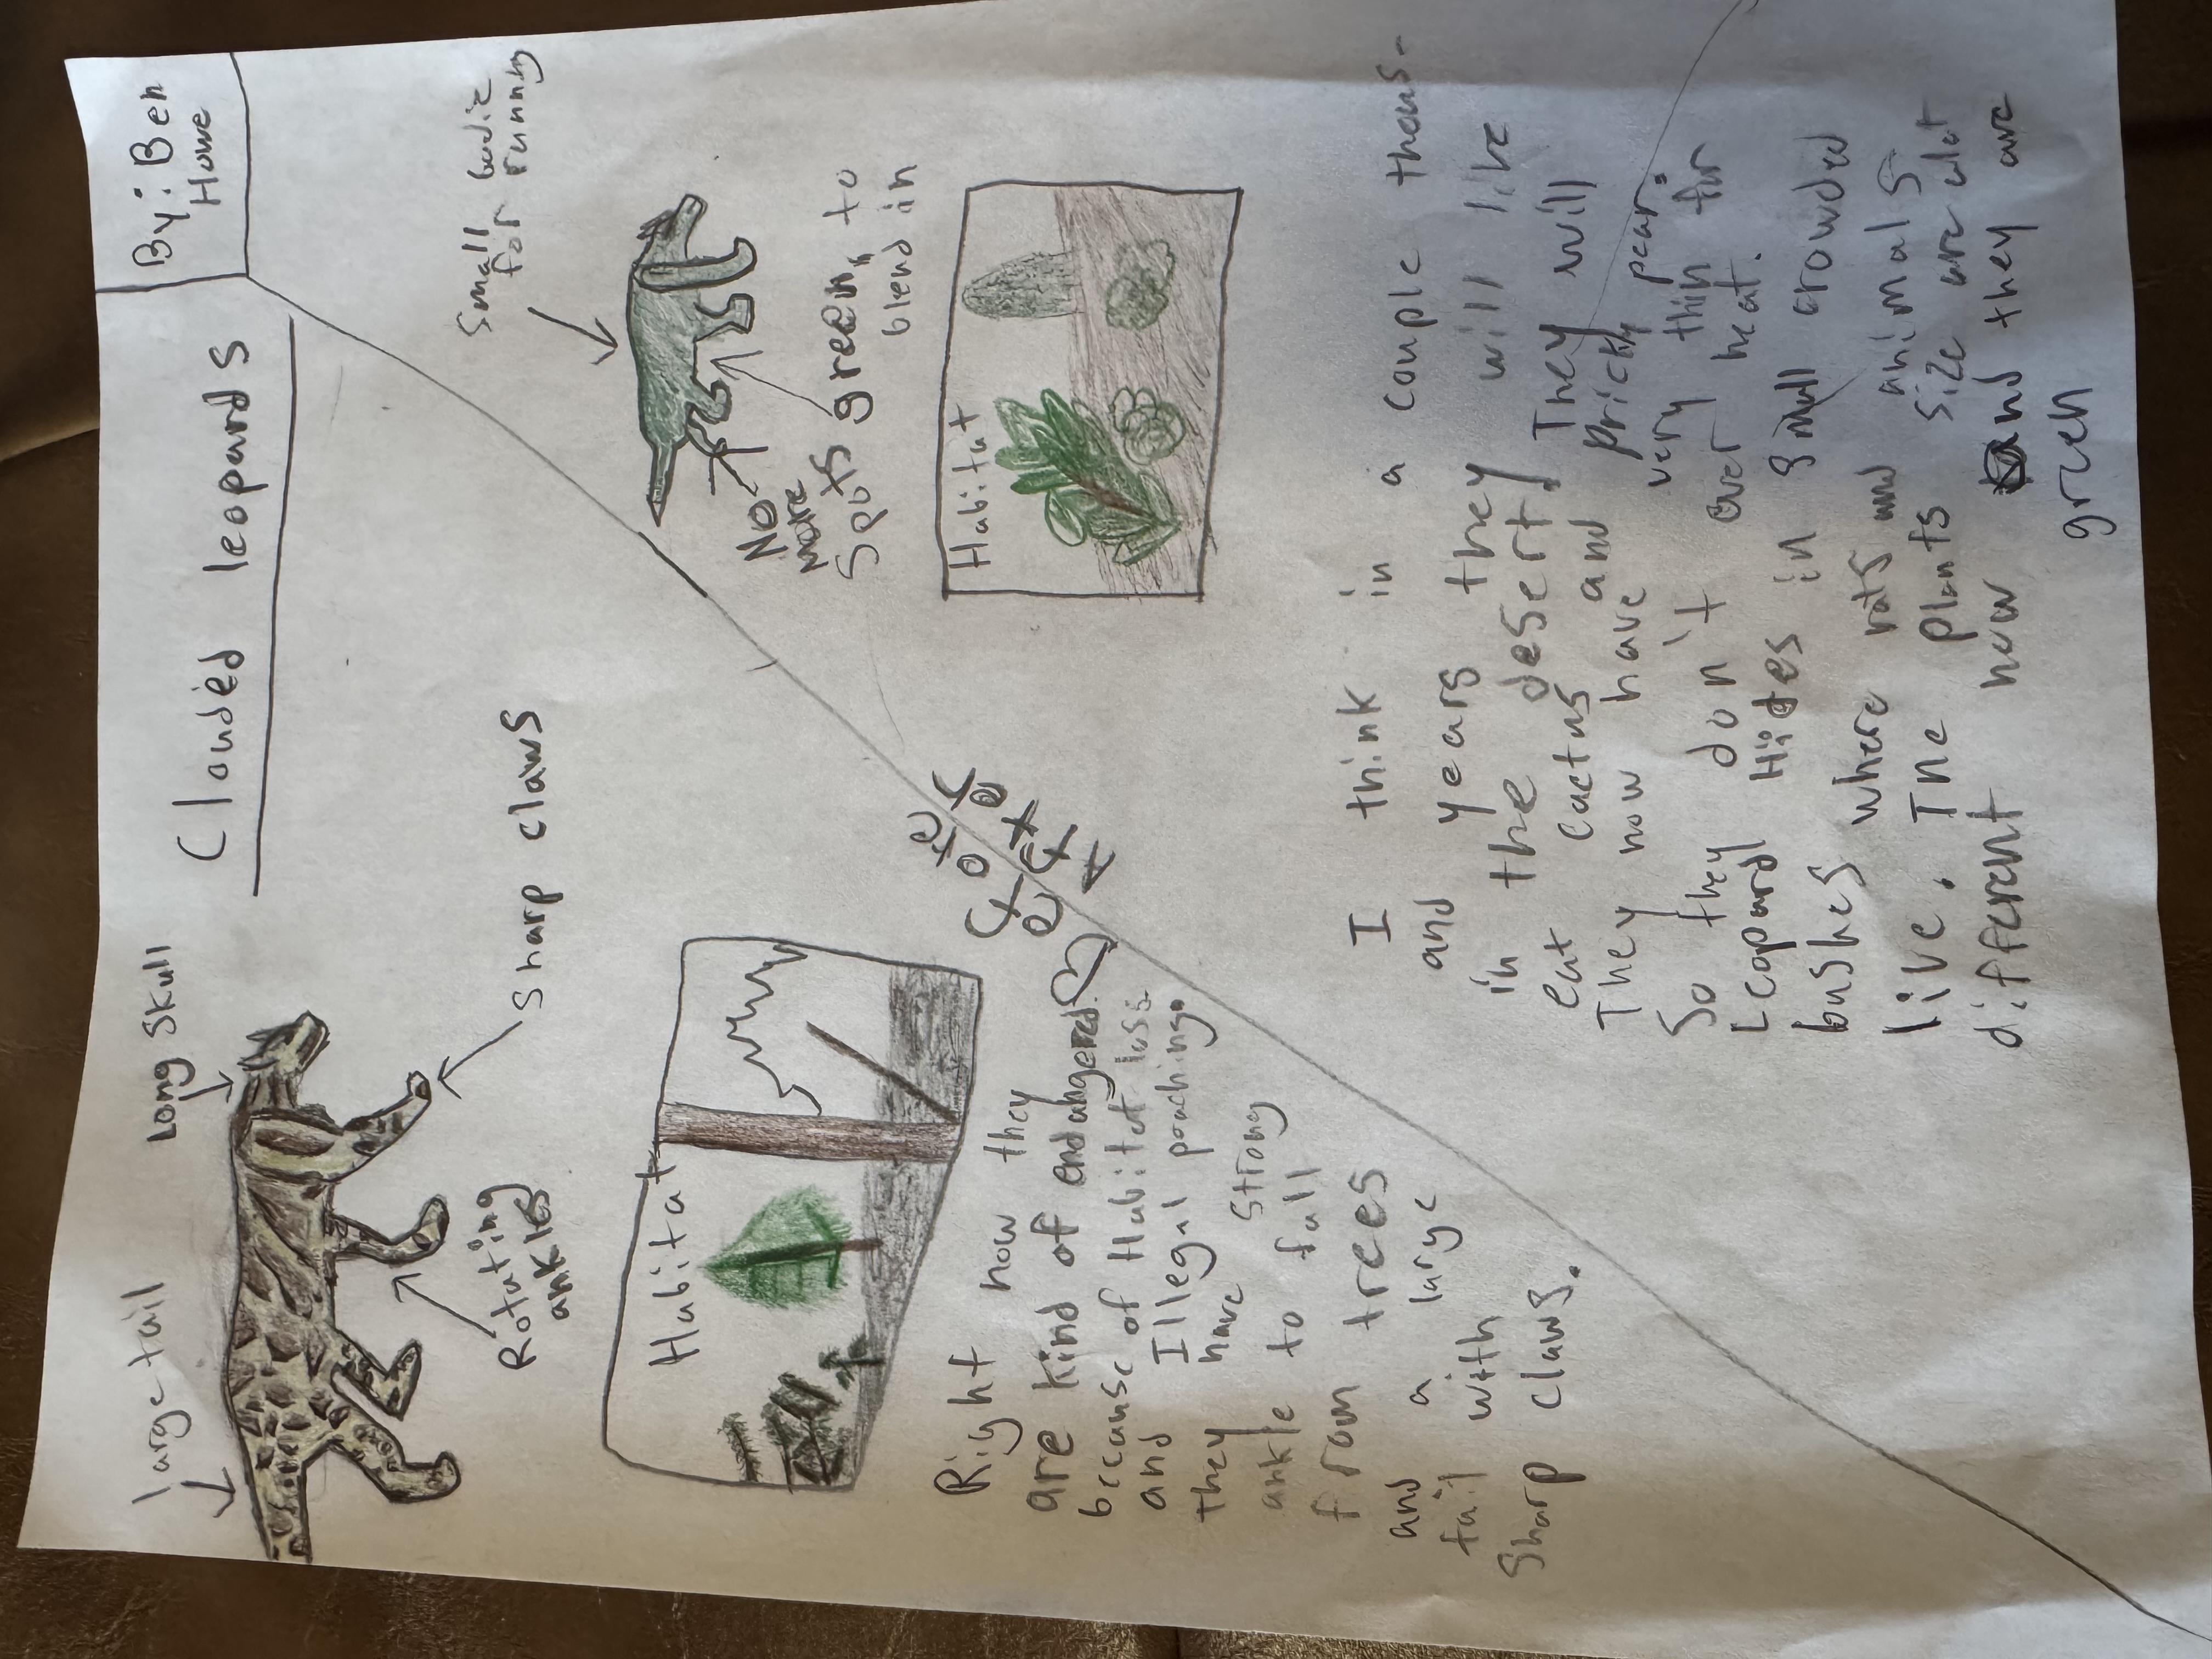 Clouded leopards
By: Ben
Howe
large tail
Long Skull
Sharp claws
Rotating
ankles
Habitat
Right now they
are kind of endangered
because of Habitat loss
and Illegal poaching.
they have Strong
ankle to fall
from trees
and a large
tail with
Sharp claws.
Small bodie
for running
No
more
Spots
green, to
blend in
Habitat
I think in a couple thous-
and years they will live
in the desert. They will
eat cactus and prickly pear.
They now have very thin fur
So they don't over heat.
Leopard Hides in small crowded
bushes where rats and animals
live. The plants size are alot
different now and they are
green